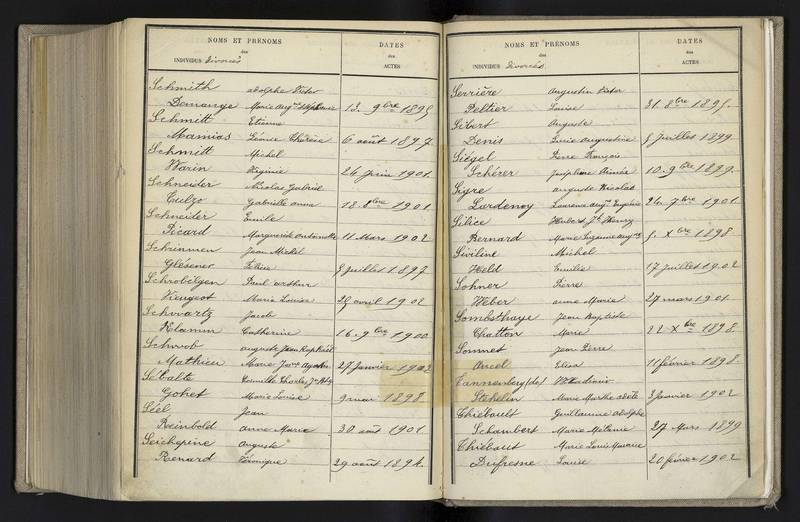 NOMS ET PRÉNOMS
des
INDIVIDUS Divorcés
DATES
des
ACTES
Schmith adolphe Victor
Demarge Marie Aug.ne Stéphanie 13. 9bre 1895
Schmitt Etienne
Mamias Léonie Thérèse 6 août 1897
Schmitt Michel
Warin Virginie 24 Juin 1901.
Schneider Nicolas Gabriel
Cuelzo Gabrielle anna 18. 8bre 1901.
Schneider Emile
Picard Marguerite antoinette 11 Mars 1902
Schrinmen Jean Michel
Glésener 8 juillet 1897
Schrobilgen Paul arthur
Vieugeot Marie Louise 29 avril 1902
Schwartz Jacob
Klamm Catherine 16. 9bre 1900
Schwob auguste Jean Raphaël
Mathieu Marie 27 Janvier 1902
Sébalte Camille Charles
Gohet Marie Louise 9 mai 1898.
Séel Jean
Reinbold anne Marie 30 août 1901.
Seichepine Auguste
Renard Véronique 29 août 1894.
NOMS ET PRÉNOMS
des
INDIVIDUS Divorcés
DATES
des
ACTES
Serrière Augustin Victor
Peltier Louise 31. 8bre 1895.
Sibert Auguste
Denis Marie Augustine 8 Juillet 1899
Siégel Pierre François
Schérer Joséphine Aimée 10. 9bre 1899.
Sigre auguste Nicolas
Lardenoy Laurence Aug.ne Eugénie 26. 7bre 1901
Silice Hubert Jh Henry
Bernard Marie Suzanne aug.ne 5. Xbre 1898
Siviline Michel
Held Emilie 17 Juillet 1902
Sohner Pierre
Weber anne Marie 27 mars 1901.
Sombsthaye Jean Baptiste
Chatton Marie 22 Xbre 1898.
Sommet Jean Pierre
Ancel Elisa 11 février 1898.
Tannenberg (de) Wladimir
Stehelin Marie Marthe adèle 3 janvier 1902
Thiébault Guillaume adolphe
Schaubert Marie Mélanie 27 Mars 1899
Thiébaut Marie Louis Maurice
Dufresne Louise 20 février 1902